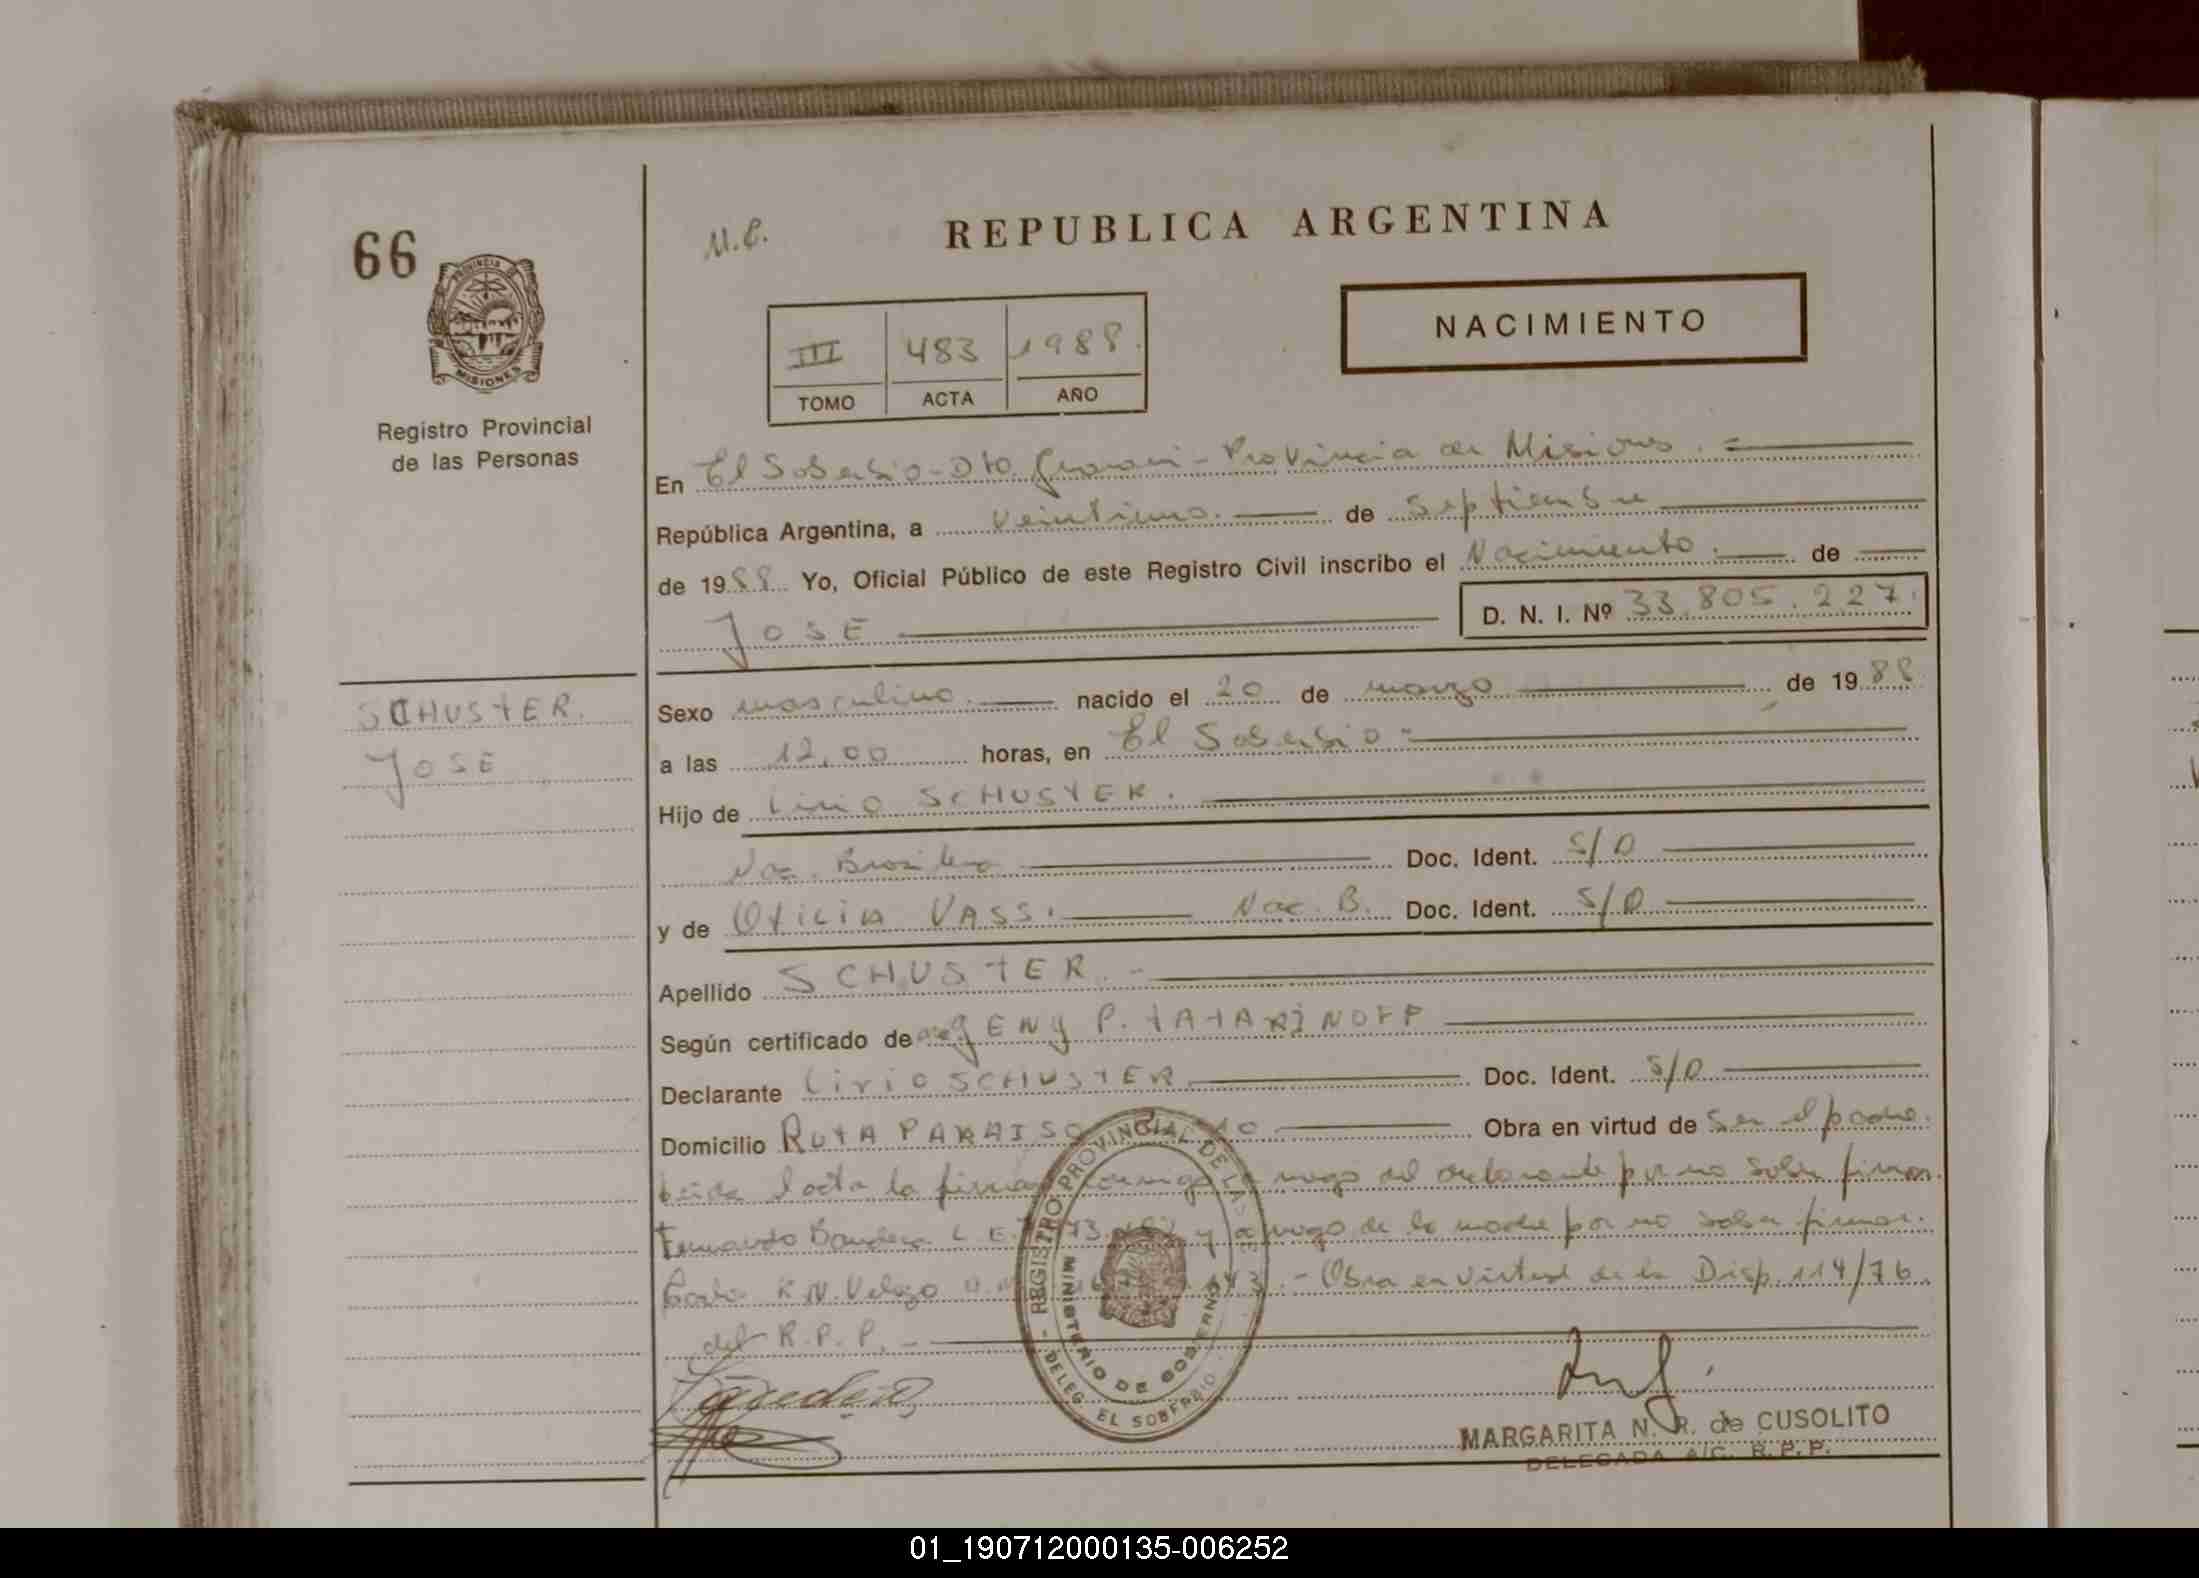 66
M.E.
REPUBLICA ARGENTINA
PROVINCIA DE
MISIONES
NACIMIENTO
III 483 1988.
TOMO ACTA AÑO
Registro Provincial
de las Personas
En El Soberbio - Dto. Guarani - Provincia de Misiones.=
República Argentina, a veintiuno. de Septiembre
de 1988 Yo, Oficial Público de este Registro Civil inscribo el Nacimiento. de
JOSE D. N. I. Nº 33.805.227.
SCHUSTER.
JOSE
Sexo masculino. nacido el 20 de marzo de 1988
a las 12,00 horas, en El Soberbio-
Hijo de Lirio SCHUSTER.
Nac. Brasilera Doc. Ident. S/D
y de OTILIA VASS. Nac. B. Doc. Ident. S/D
Apellido SCHUSTER.-
Según certificado de GENY P. TATARINOFF
Declarante Lirio SCHUSTER Doc. Ident. S/D
Domicilio RUTA PARAISO 10 Obra en virtud de ser el padre.
Leida l acta la firma conmigo a ruego del declarante por no saber firmar.
Fernando Bandera L.E. y a ruego de la madre por no saber firmar.
R.N. Velozo - Obra en virtud de la Disp. 114/76
del R.P.P.-
REGISTRO PROVINCIAL DE LAS
MINISTERIO DE GOBIERNO
DELEG. EL SOBERBIO
MARGARITA N. R. de CUSOLITO
DELEGADA A/C. R.P.P.
01_190712000135-006252